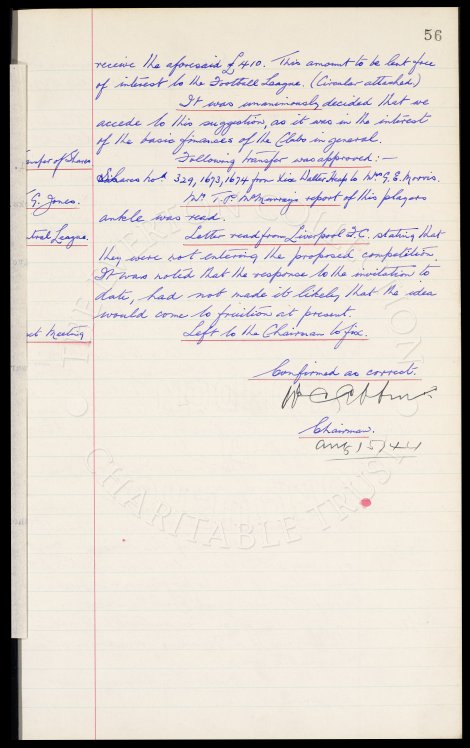 56
receive the aforesaid £410. This amount to be lent free
of interest to the Football League. (Circular attached)
It was unanimously decided that we
accede to this suggestion, as it was in the interest
of the basic finances of the Clubs in general.
ansfer of Shares
Following transfer was approved:-
Shares Nos. 329, 1673, 1674 from Walter Heap to Mr. G. E. Morris.
G. Jones.
Mr. report of this players
ankle was read.
tral League.
Letter read from Liverpool F.C. stating that
they were not entering the proposed competition.
It was noted that the response to the invitation to
date, had not made it likely that the idea
would come to fruition at present.
ext Meeting
Left to the Chairman to fix.
Confirmed as correct.
Chairman.
Aug 15/44
CHARITABLE TRUST